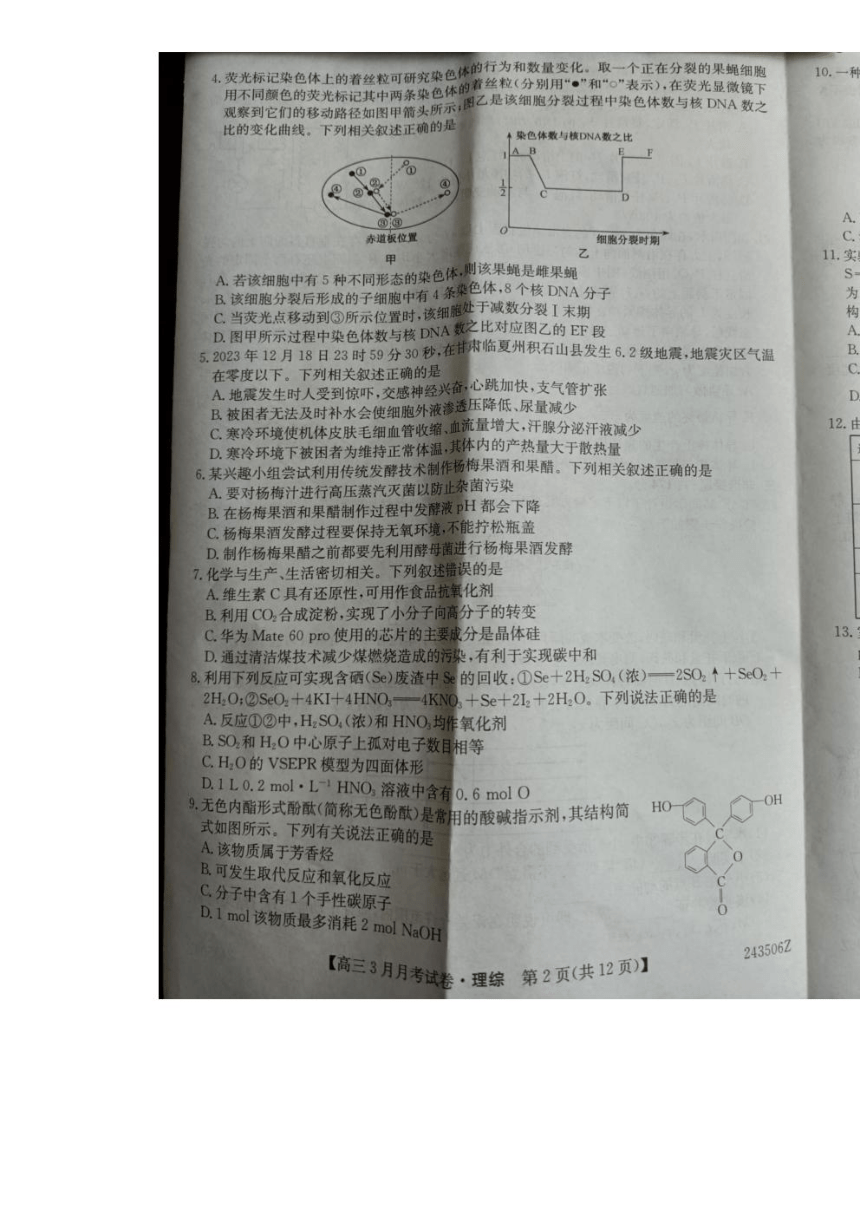 4.荧光标记染色体上的着丝粒可研究染色体的行为和数量变化。取一个正在分裂的果蝇细胞
用不同颜色的荧光标记其中两条染色体的着丝粒(分别用“●”和“○”表示),在荧光显微镜下
观察到它们的移动路径如图甲箭头所示;图乙是该细胞分裂过程中染色体数与核 DNA 数之
比的变化曲线。下列相关叙述正确的是
① ① ② ② ③ ③ ④ ④
赤道板位置
甲
染色体数与核DNA数之比
1 A B E F
1/2 C D
O 细胞分裂时期
乙
A. 若该细胞中有 5 种不同形态的染色体,则该果蝇是雌果蝇
B. 该细胞分裂后形成的子细胞中有 4 条染色体,8 个核 DNA 分子
C. 当荧光点移动到③所示位置时,该细胞处于减数分裂Ⅰ末期
D. 图甲所示过程中染色体数与核 DNA 数之比对应图乙的 EF 段
5. 2023 年 12 月 18 日 23 时 59 分 30 秒,在甘肃临夏州积石山县发生 6.2 级地震,地震灾区气温
在零度以下。下列相关叙述正确的是
A. 地震发生时人受到惊吓,交感神经兴奋,心跳加快,支气管扩张
B. 被困者无法及时补水会使细胞外液渗透压降低、尿量减少
C. 寒冷环境使机体皮肤毛细血管收缩、血流量增大,汗腺分泌汗液减少
D. 寒冷环境下被困者为维持正常体温,其体内的产热量大于散热量
6. 某兴趣小组尝试利用传统发酵技术制作杨梅果酒和果醋。下列相关叙述正确的是
A. 要对杨梅汁进行高压蒸汽灭菌以防止杂菌污染
B. 在杨梅果酒和果醋制作过程中发酵液 pH 都会下降
C. 杨梅果酒发酵过程要保持无氧环境,不能拧松瓶盖
D. 制作杨梅果醋之前都要先利用酵母菌进行杨梅果酒发酵
7. 化学与生产、生活密切相关。下列叙述错误的是
A. 维生素 C 具有还原性,可用作食品抗氧化剂
B. 利用 CO₂ 合成淀粉,实现了小分子向高分子的转变
C. 华为 Mate 60 pro 使用的芯片的主要成分是晶体硅
D. 通过清洁煤技术减少煤燃烧造成的污染,有利于实现碳中和
8. 利用下列反应可实现含硒(Se)废渣中 Se 的回收:①Se+2H₂SO₄(浓)══2SO₂↑+SeO₂+
2H₂O;②SeO₂+4KI+4HNO₃══4KNO₃+Se+2I₂+2H₂O。下列说法正确的是
A. 反应①②中,H₂SO₄(浓)和 HNO₃均作氧化剂
B. SO₂ 和 H₂O 中心原子上孤对电子数目相等
C. H₂O 的 VSEPR 模型为四面体形
D. 1 L 0.2 mol·L⁻¹ HNO₃ 溶液中含有 0.6 mol O
9. 无色内酯形式酚酞(简称无色酚酞)是常用的酸碱指示剂,其结构简
式如图所示。下列有关说法正确的是
HO OH
C
O
C
O
A. 该物质属于芳香烃
B. 可发生取代反应和氧化反应
C. 分子中含有 1 个手性碳原子
D. 1 mol 该物质最多消耗 2 mol NaOH
【高三 3 月月考试卷·理综 第 2 页(共 12 页)】
243506Z
10. 一种
A.
C.
11. 实
S=
为
构
A.
B.
C.
D
12. 由
13.